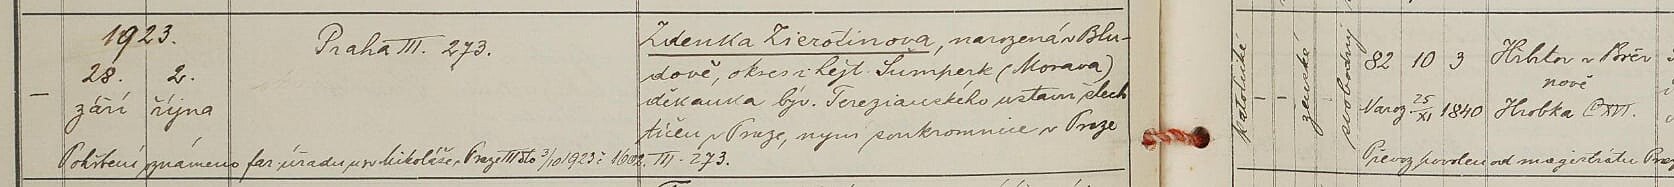 1923.
28. 2.
září října
Praha III. 273.
Zdenka Zierotinova, narozená v Blu-
dově, okres: hejt. Šumperk (Morava)
děkanka býv. Tereziánského ustavu šlech
tičen v Praze, nyní soukromnice v Praze
III. 273.
Pohřbení oznámeno far. úradu u sv Mikoláše v Praze III dto 3/10 1923 č 1602.
katolické
ženská
svobodný
82 10 3
Naroz. 25/XI 1840
Hřbitov v Břev
nově
Hrobka CXVI.
Převoz povolen od magistrátu Pra